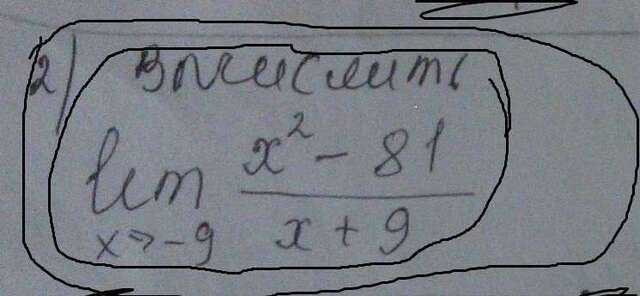 2) Вычислить
lim x→-9 (x² - 81)/(x + 9)